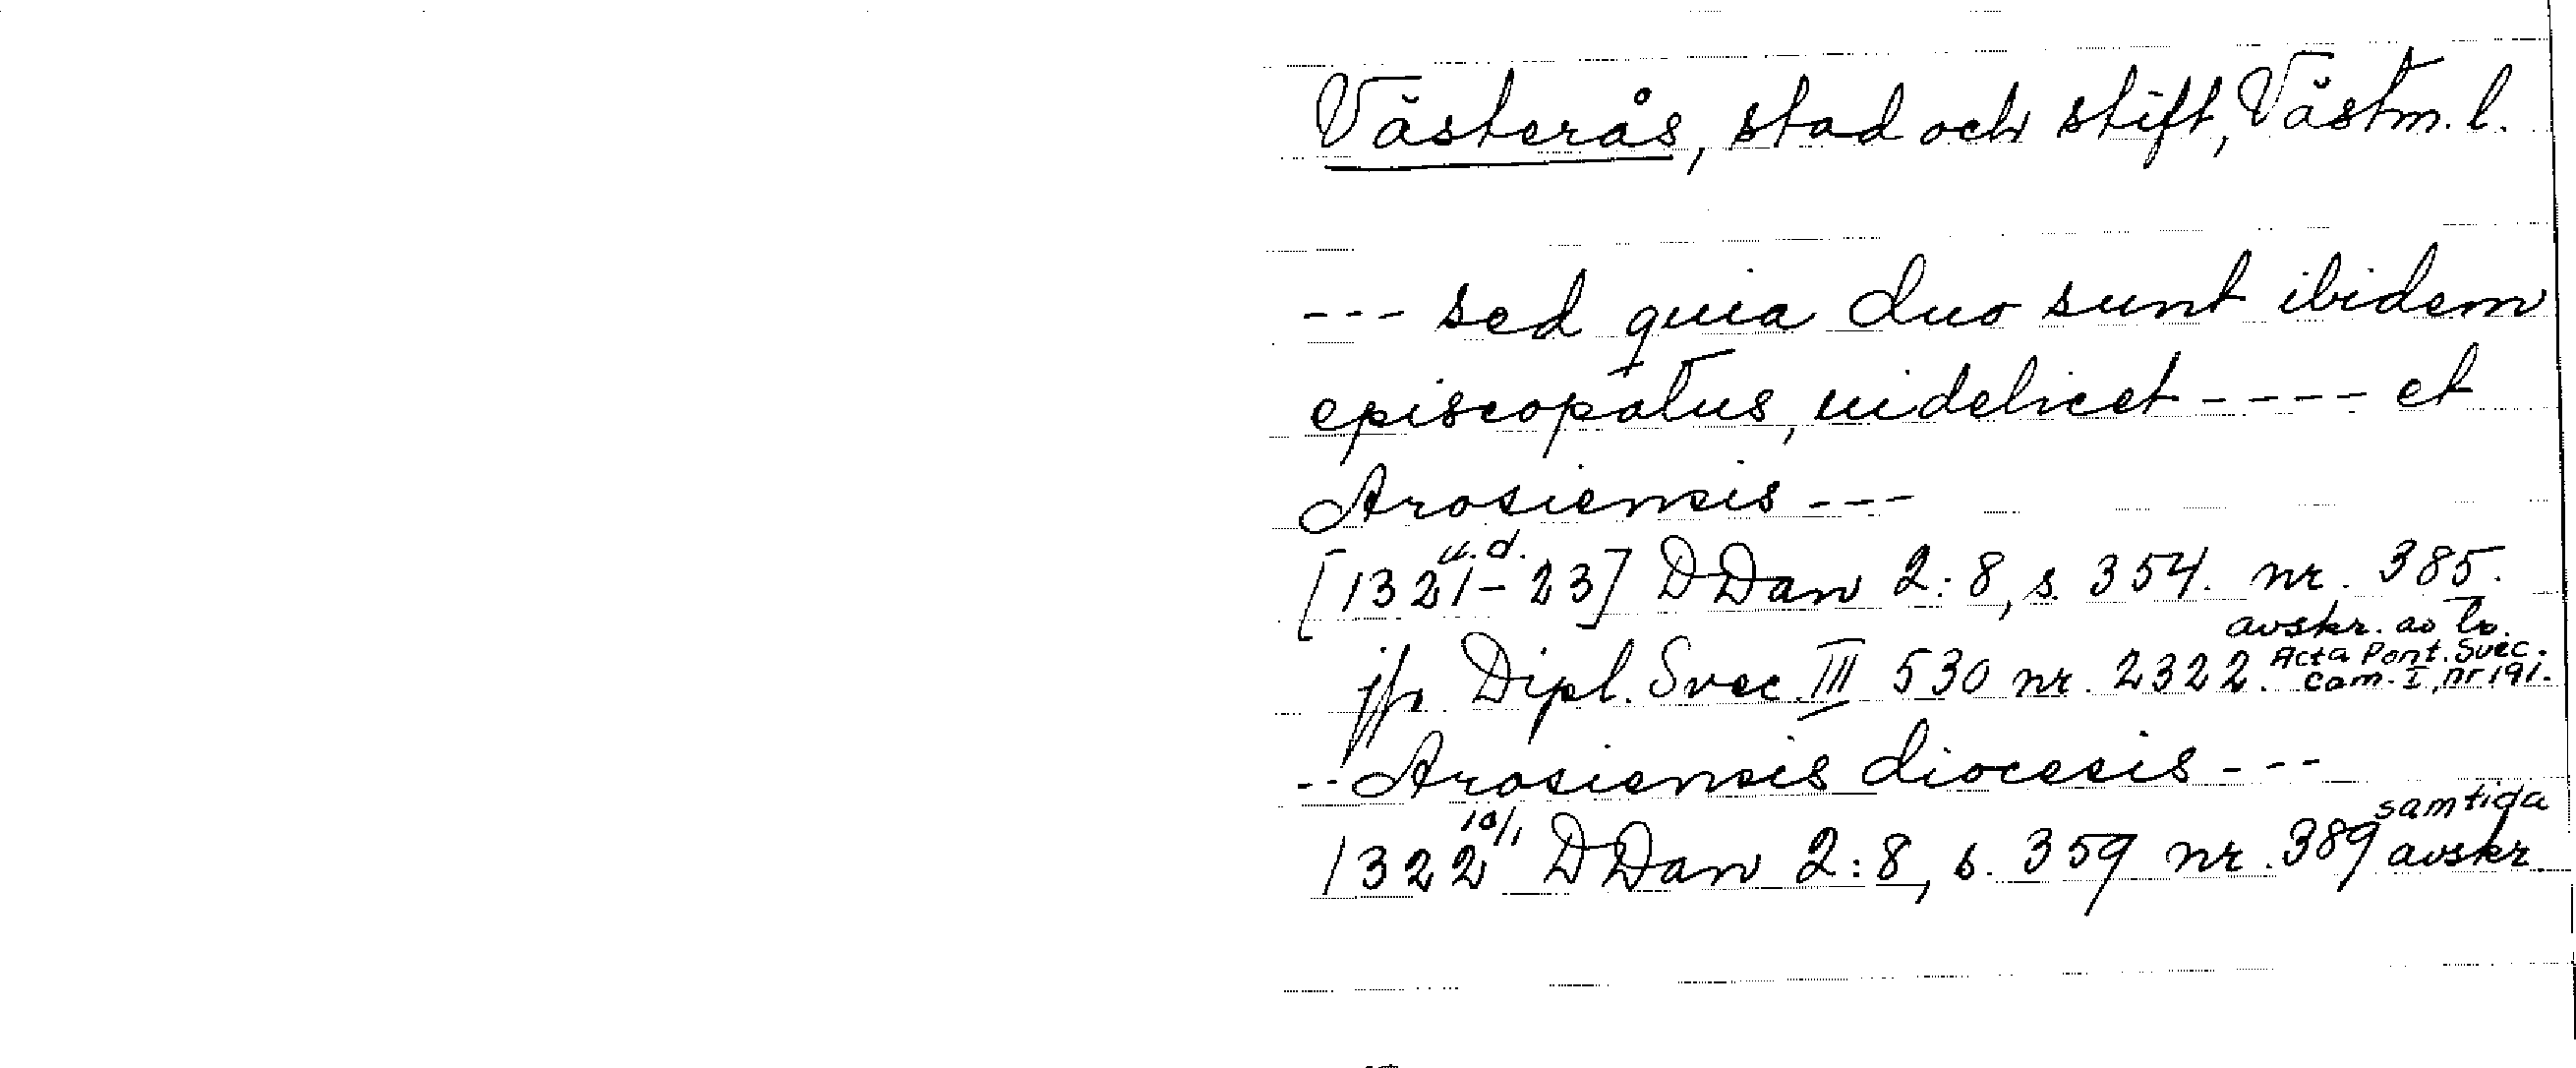 Västerås, stad och stift, Västm. l.
--- sed quia duo sunt ibidem
episcopatus, uidelicet ---- et
Arosiensis ---
u.d.
[1321-23] DDan 2:8, s. 354. nr. 385.
avskr. av
jfr Dipl. Svec. III 530 nr. 2322. Acta Pont. Svec.
cam. I, nr 191.
-- Arosiensis diocesis ---
10/1 samtida
1322 DDan 2:8, s. 359 nr. 389 avskr.